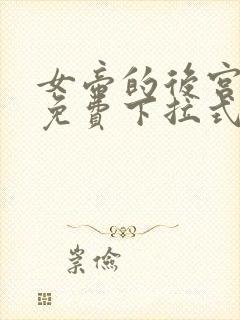 女帝的後宮
免費下拉式
崇儉